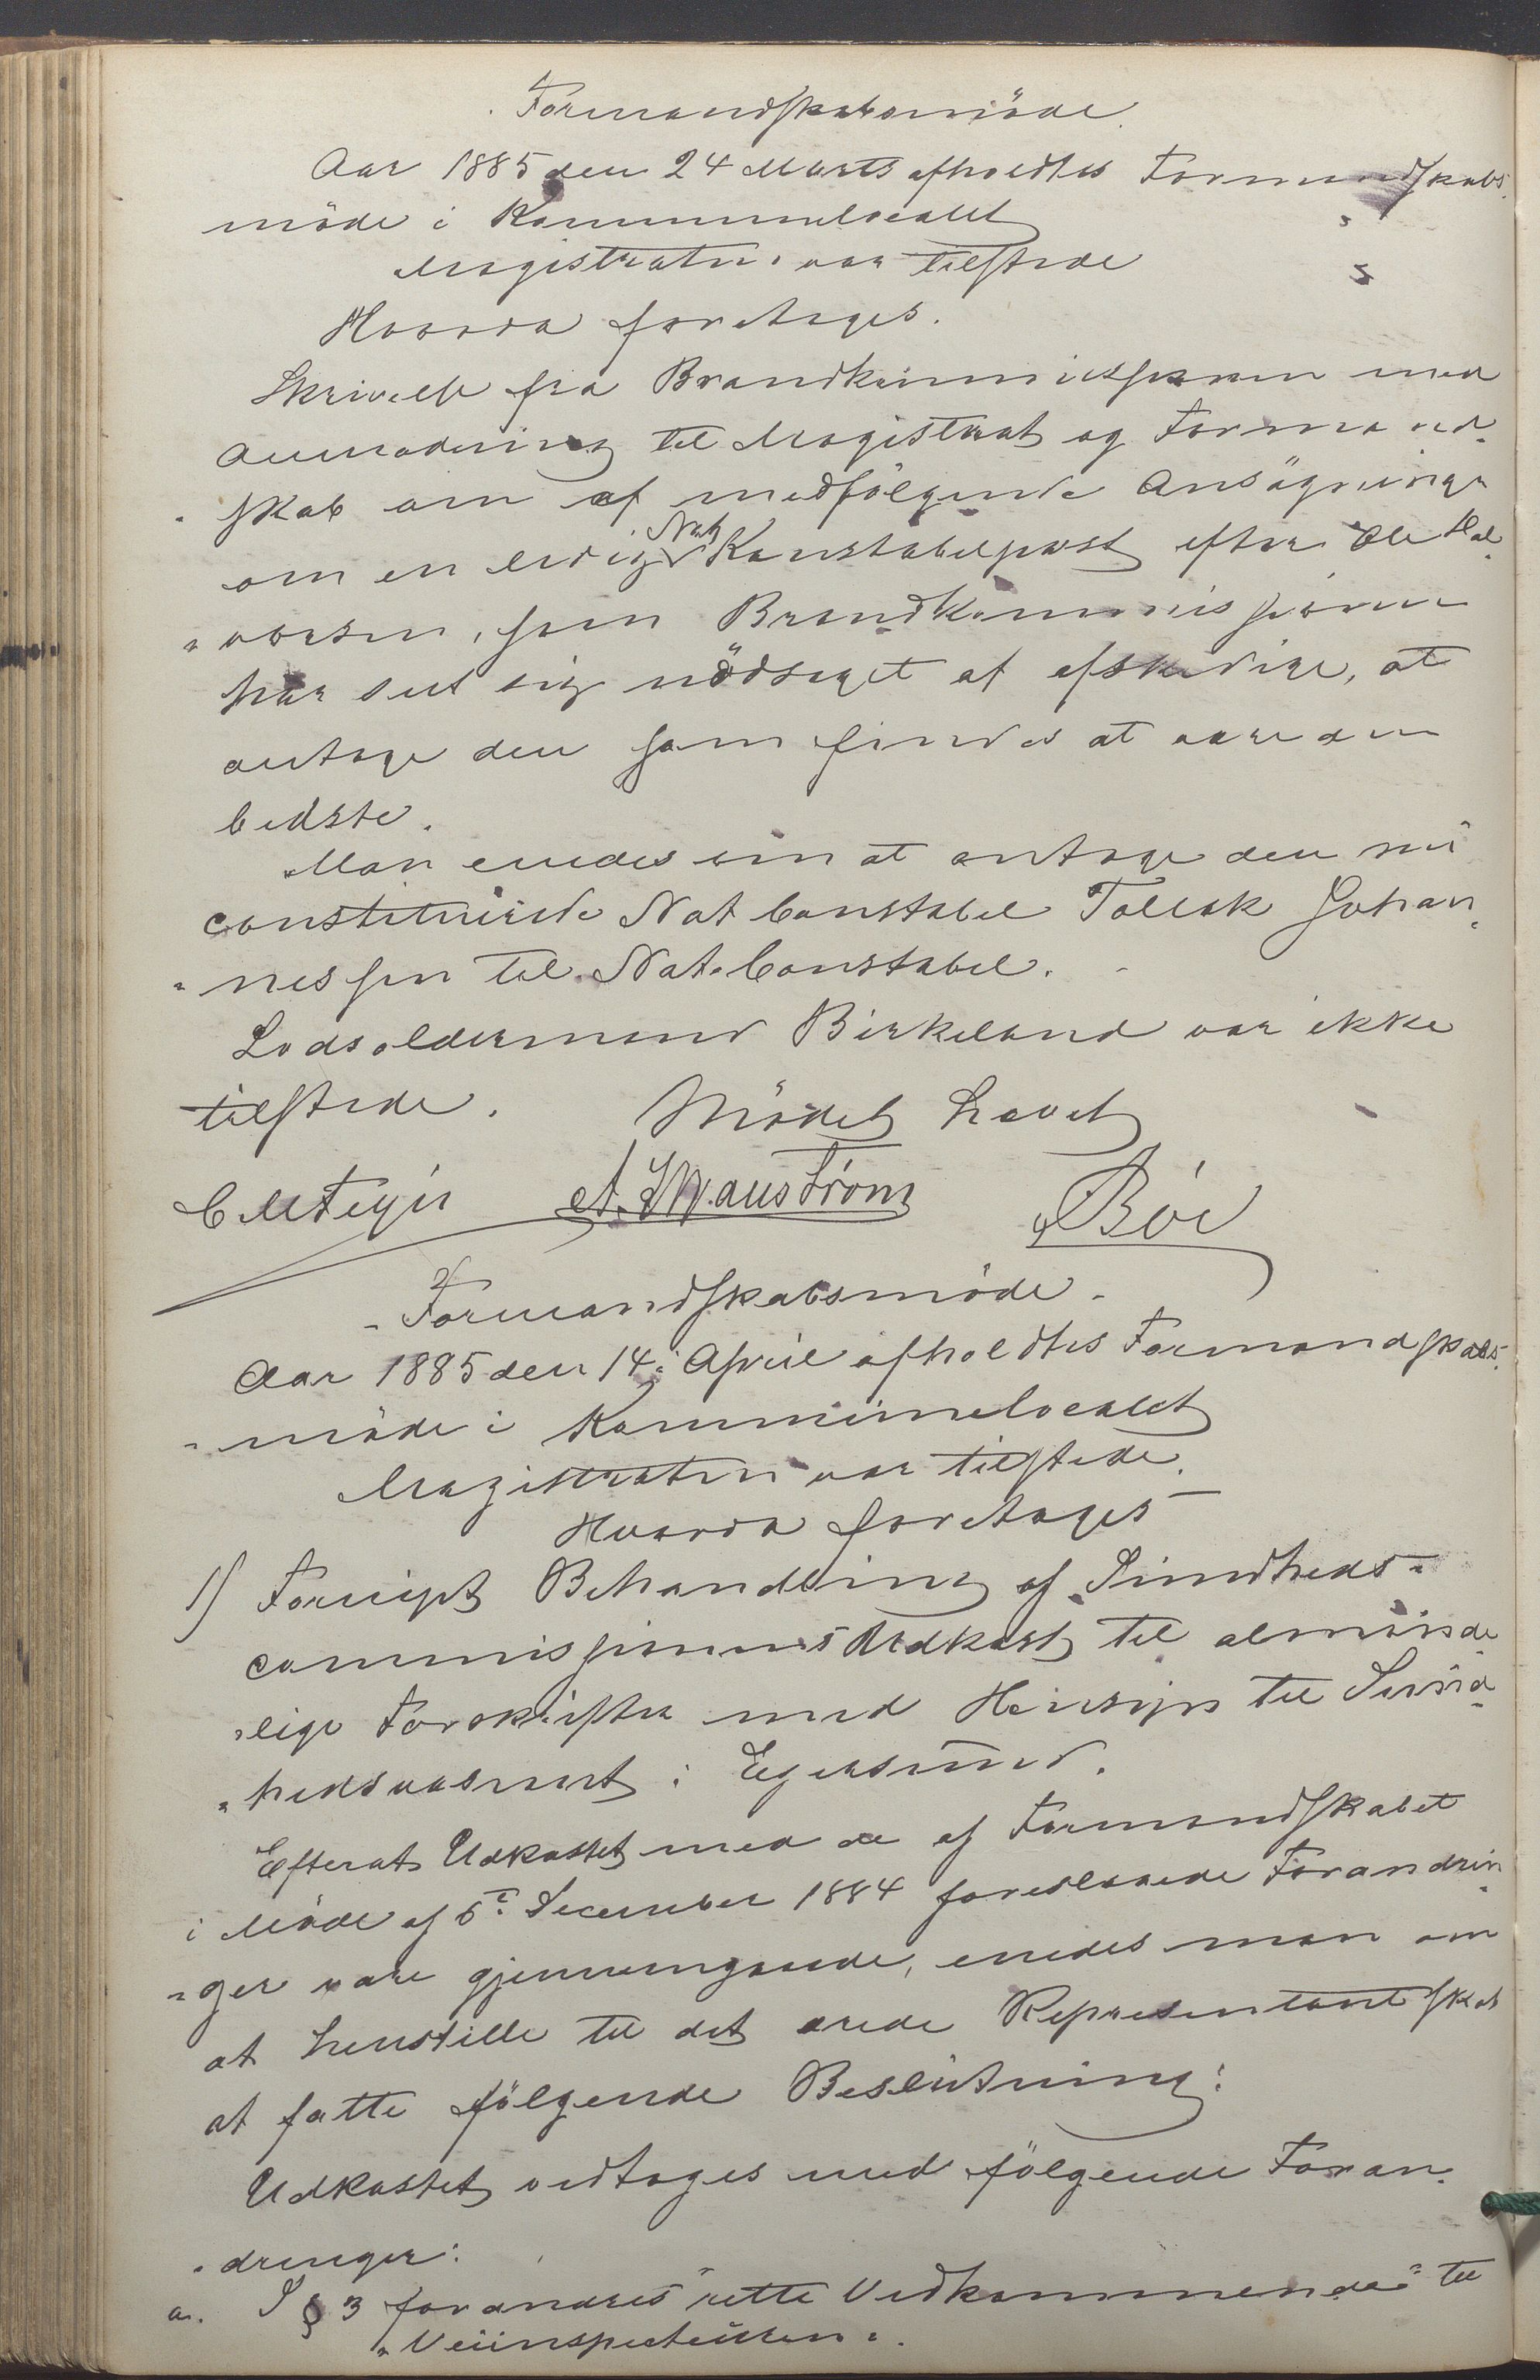 Formandskabsmöde.
Aar 1885 den 24 Marts afholdtes Formandskabs-
möde i Kommunelocalet
Magistraten var tilstede
Hvorda foretoges.
Skrivelse fra Brandkommissionen med
Anmodning til Magistrat og Formand-
skab om af medfölgende Ansögninger
om en ledig Nat Konstabelpost efter Ole Hal-
vorsen, som Brandkommissionen
har seet sig nödsaget at afskedige, at
antage den som findes at være den
bedste.
Man enedes om at antage den nu
constituerede Nat Constabel Tollak Johan-
nessen til Nat-Constabel.
Lodsoldermand Birkeland var ikke
tilstede. Mödet hævet
Böe
Formandskabsmöde.
Aar 1885 den 14. April afholdtes Formandskabs-
möde i Kommunelocalet
Magistraten var tilstede.
Hvorda foretoges
1) Fornyet Behandling af Sundheds-
commissionens Udkast til alminde
lige Forskrifter med Hensyn til Sund-
hedsvæsenet i Egersund.
Efterat Udkastet med de af Formandskabet
i Möde af 5te December 1884 foreslaaede Forandrin-
ger vare gjennemgaaede, enedes man om
at henstille til det ærede Representantskab
at fatte fölgende Beslutning:
Udkastet vedtages med fölgende Foran-
dringer:
a. I § 3 forandres "rette Vedkommende" til
"Veiinspecteuren".